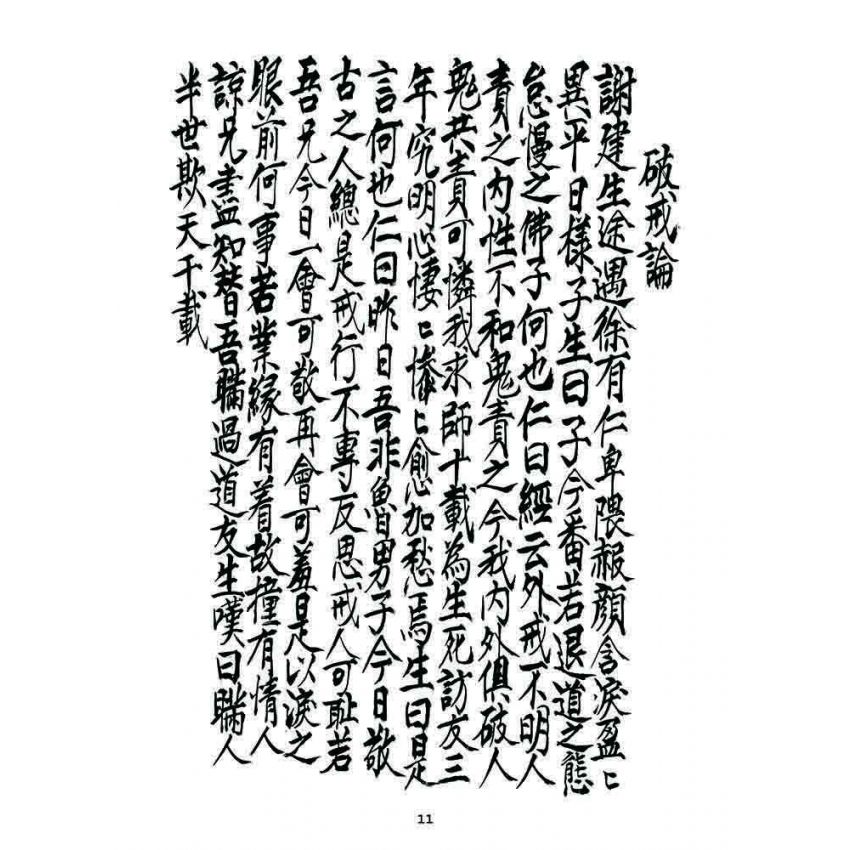 破戒論
謝建生途遇徐有仁卑隈赧顏含淚盈〻
異平日樣子生曰子今番若退道之態
怠慢之佛子何也仁曰經云外戒不明人
責之內性不和鬼責之今我內外俱破人
鬼共責可憐我求師十載為生死訪友三
年究明心悽〻慘〻愈加愁焉生曰是
言何也仁曰昨日吾非魯男子今日敬
古之人總是戒行不專反思戒人可恥若
吾兄今日一會可敬再會可羞是以淚之
眼前何事若業緣有着故撞有情人
諒兄盡知替吾瞞過道友生嘆曰瞞人
半世欺天千載
11